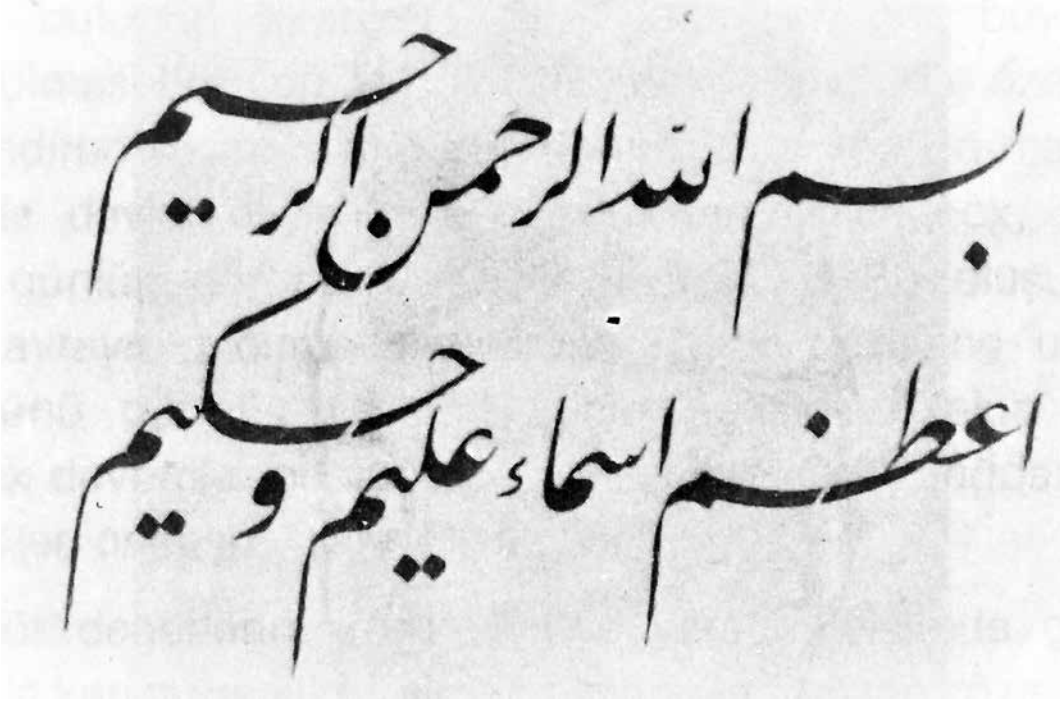 بسم الله الرحمن الرحيم
اعظم اسماء عليم و حكيم